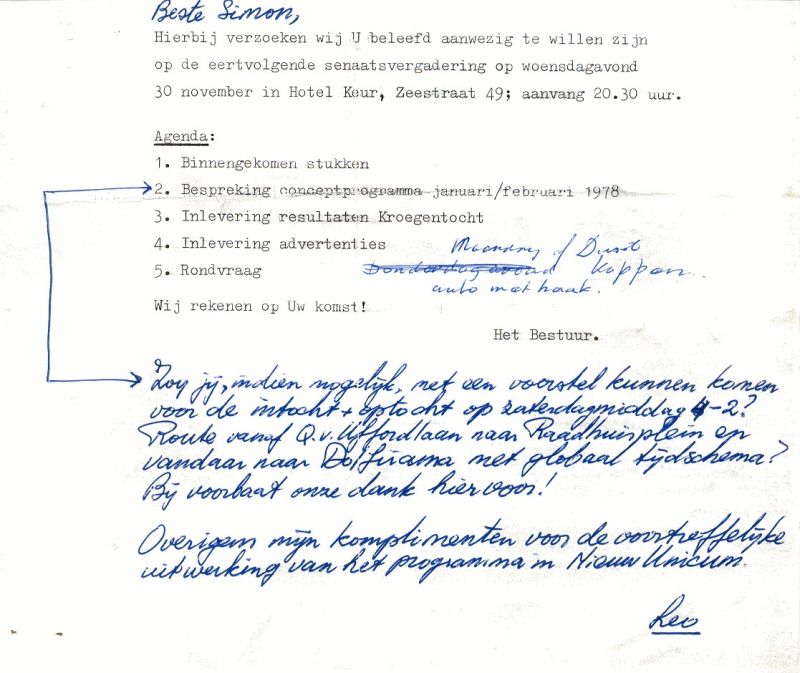 Beste Simon,
Hierbij verzoeken wij U beleefd aanwezig te willen zijn
op de eertvolgende senaatsvergadering op woensdagavond
30 november in Hotel Keur, Zeestraat 49; aanvang 20.30 uur.
Agenda:
1. Binnengekomen stukken
2. Bespreking conceptprogramma januari/februari 1978
3. Inlevering resultaten Kroegentocht
4. Inlevering advertenties
Maandag of
5. Rondvraag
Donderdagavond Koppen
auto met haak.
Wij rekenen op Uw komst!
Het Bestuur.
Zou jij, indien mogelijk, met een voorstel kunnen komen
voor de intocht + optocht op zaterdagmiddag 4-2?
Route vanaf Q.v.Uffordlaan naar Raadhuisplein en
vandaar naar Dolfirama met globaal tijdschema?
Bij voorbaat onze dank hiervoor!
Overigens mijn komplimenten voor de voortreffelijke
uitwerking van het programma in Nieuw Unicum.
Leo